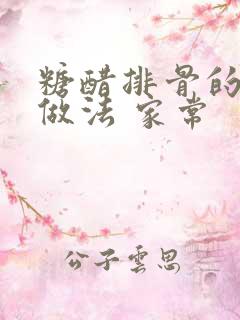 糖醋排骨的
做法 家常
公子雲思